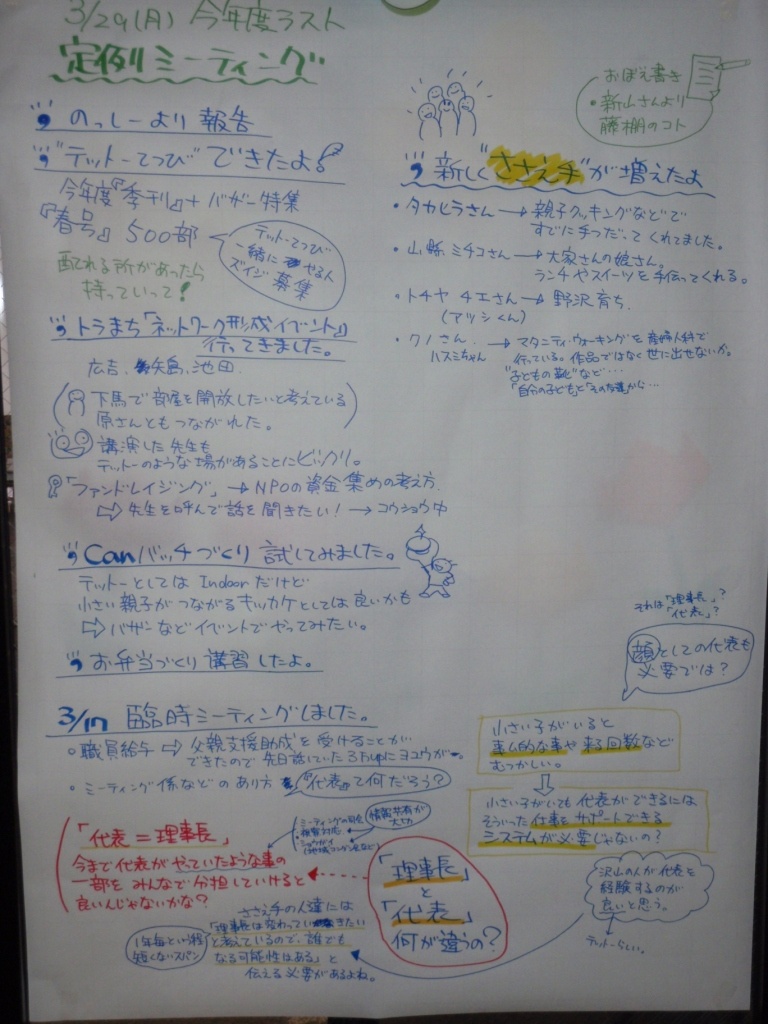 3/29(月) 今年度ラスト
定例ミーティング
のっしーより報告
"テットーてつび"できたよ!
今年度『季刊』+バザー特集
『春号』500部
配れる所があったら
持っていって!
テットーてつび
一緒にやる人
ズイジ募集
トラまち「ネットワーク形成イベント」
行ってきました。
広吉、矢島、池田
下馬で部屋を開放したいと考えている
原さんともつながれた。
講演した先生も
テットーのような場があることにビックリ。
「ファンドレイジング」→NPOの資金集めの考え方
⇨先生を呼んで話を聞きたい!→コウショウ中
Canバッチづくり試してみました。
テットーとしてはIndoorだけど
小さい親子がつながるキッカケとしては良いかも
⇨バザーなどイベントでやってみたい。
お弁当づくり講習したよ。
おぼえ書き
・新山さんより
藤棚のコト
新しく"ささえ手"が増えたよ
・タカヒラさん→親子クッキングなどで
すでに手つだってくれてました。
・山縣ミチコさん→大家さんの娘さん。
ランチやスイーツを手伝ってくれる。
・トチヤ チエさん→野沢育ち
(アツシくん)
・クノさん→マタニティ・ウォーキングを産婦人科で
ハスミちゃん
行っている。作品ではなく世に出せないか。
"子どもの靴"など…
「自分の子ども」と「その友達」から…
3/17 臨時ミーティングしました。
○職員給与⇨父親支援助成を受けることが
できたので先日話していた3万upにヨユウが〜
・ミーティング係などのあり方
「代表」って何だろう?
それは「理事長」?
「代表」?
顔としての代表も
必要では?
小さい子がいると
事ム的な事や来る回数など
むつかしい。
小さい子がいても代表ができるには
そういった仕事をサポートできる
システムが必要じゃないの?
「代表=理事長」
今まで代表がやっていたような事の
一部をみんなで分担していけると
良いんじゃないかな?
・ミーティングの司会
・視察対応
情報共有が
大切
「理事長」
と
「代表」
何が違うの?
沢山の人が代表を
経験するのが
良いと思う。
テットーらしい。
ささえ手の人達には
「理事長は変わっていきたい
と考えているので、誰でも
なる可能性はある」と
伝える必要があるよね。
1年毎という程
短くないスパン